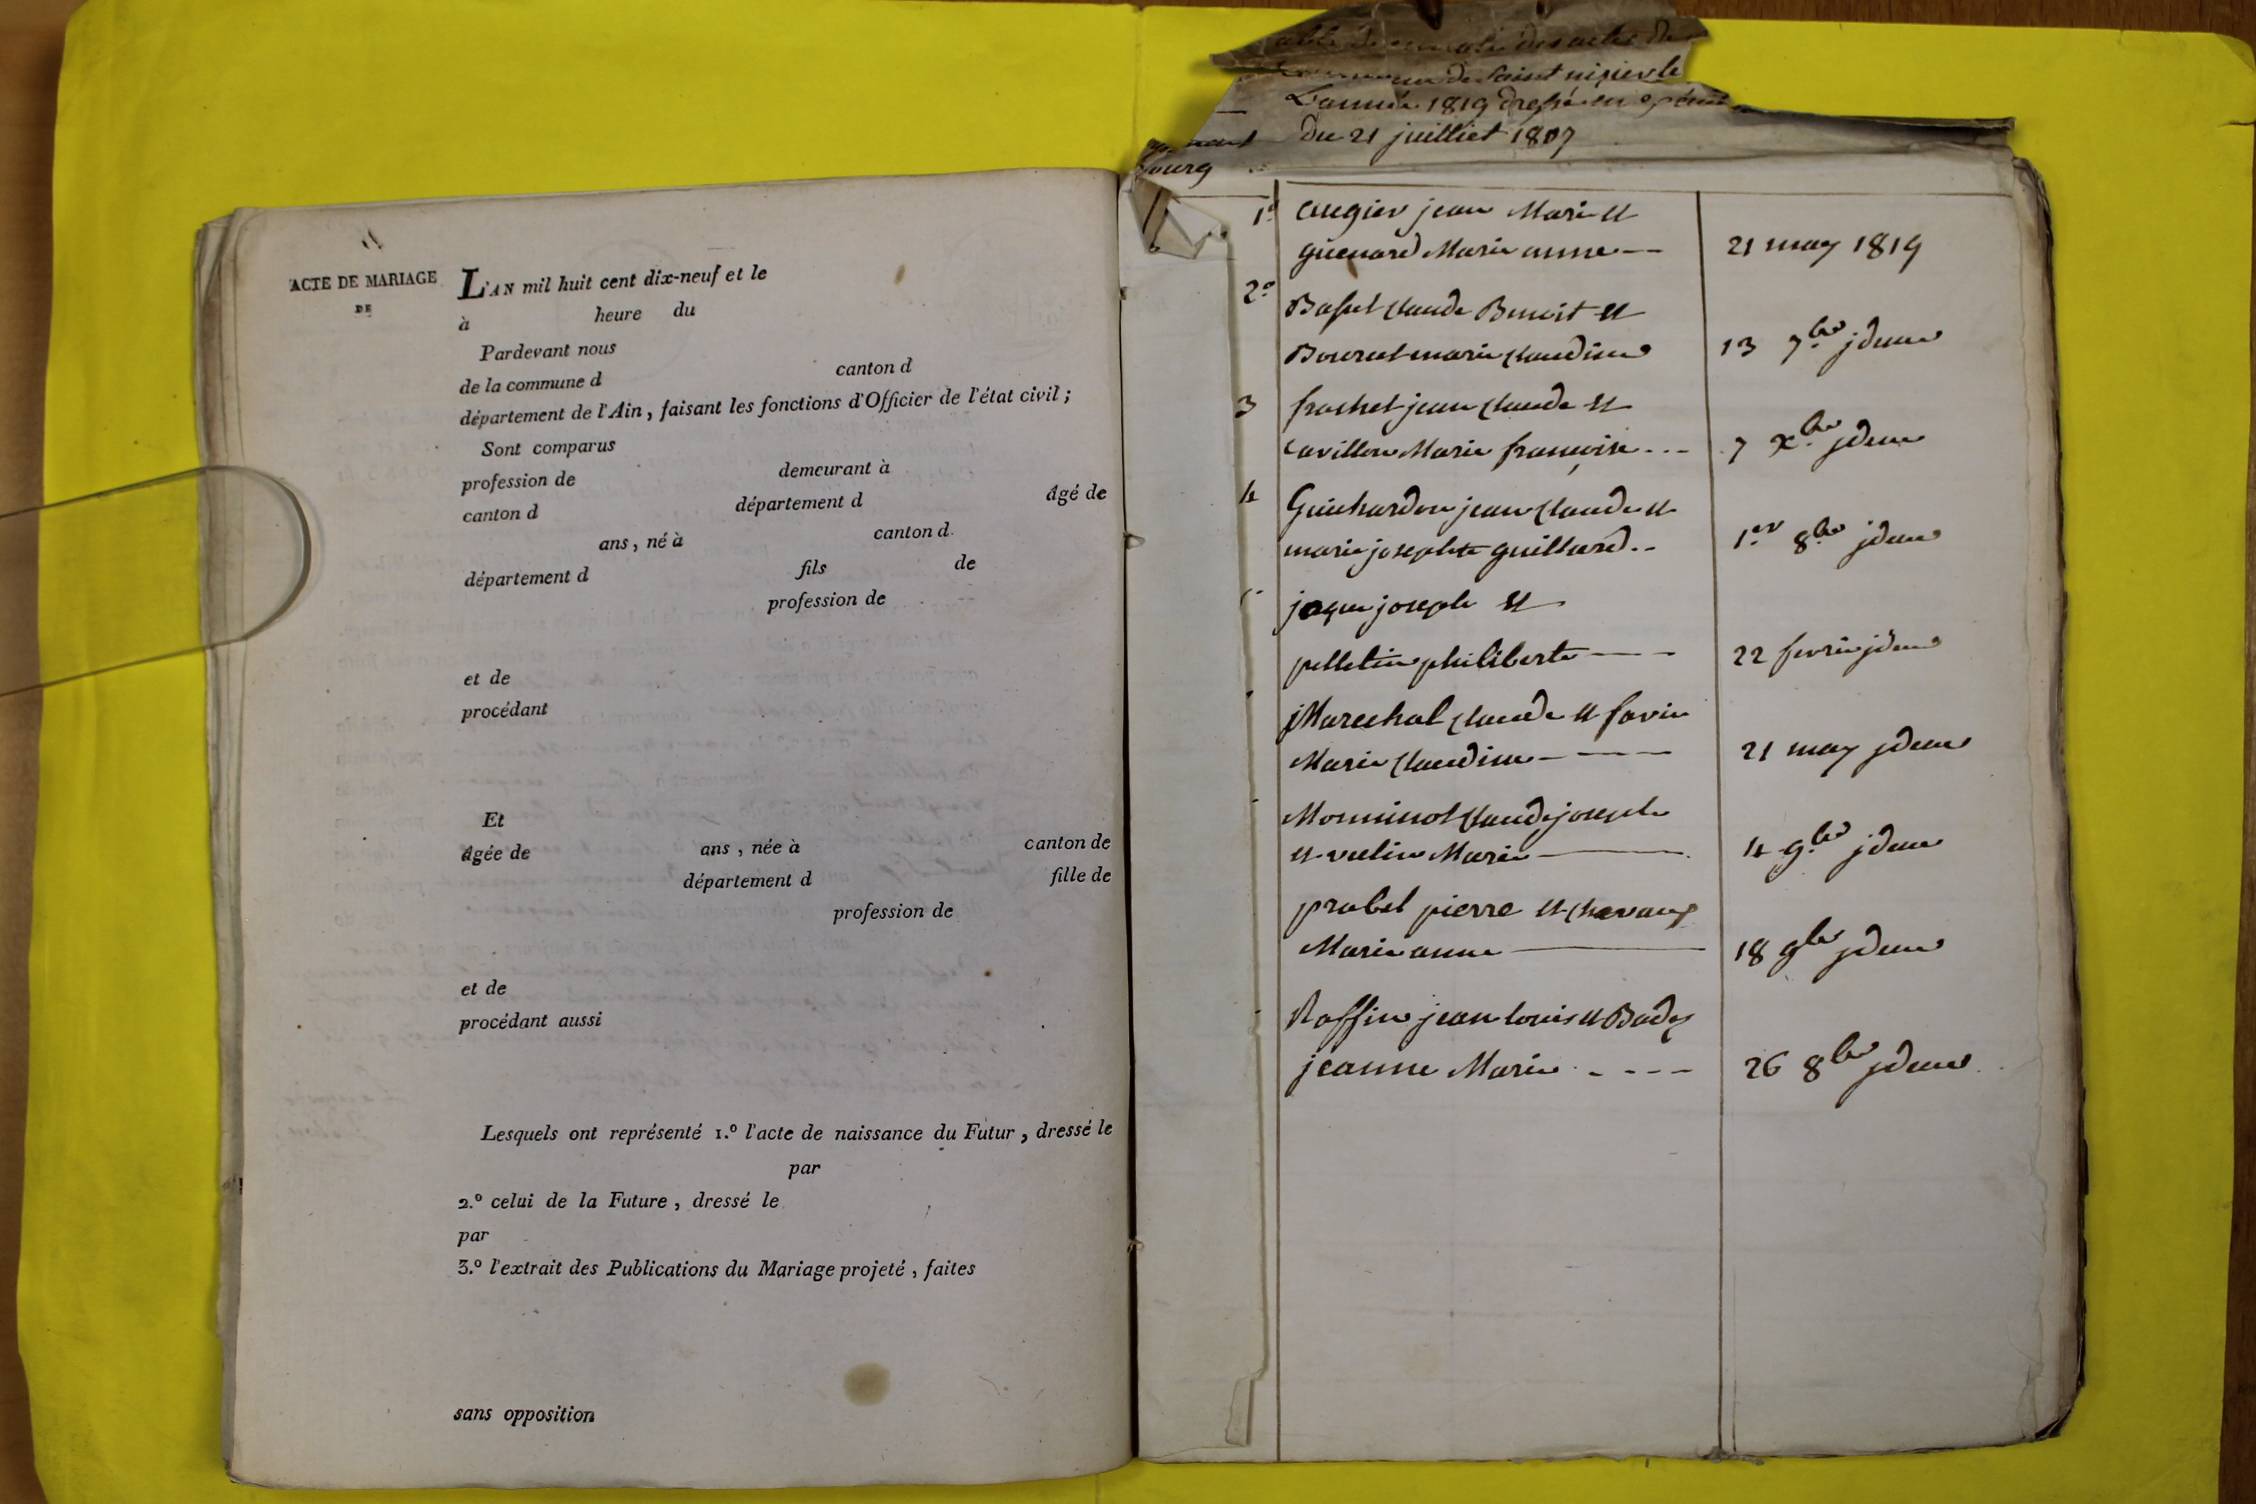 ACTE DE MARIAGE
DE
L'AN mil huit cent dix-neuf et le
à heure du
Pardevant nous
de la commune d canton d
département de l'Ain, faisant les fonctions d'Officier de l'état civil;
Sont comparus
profession de demeurant à
canton d département d âgé de
ans, né à canton d
département d fils de
profession de
et de
procédant
Et
âgée de ans, née à canton de
département d fille de
profession de
et de
procédant aussi
Lesquels ont représenté 1.º l'acte de naissance du Futur, dressé le
par
2.º celui de la Future, dressé le
par
3.º l'extrait des Publications du Mariage projeté, faites
sans opposition
des actes de
de Saint nizier le
L'année 1819 dressé en
du 21 juilliet 1807
bourg
1º augier jean Marie et
guenard Marie anne -- 21 may 1819
2º Basset claude Benoit et
Bourcet marie claudine 13 7bre jdem
3 frachet jean claude et
cavillon Marie françoise --- 7 Xbre jdem
4 Guichardon jean claude et
marie josephte guillard -- 1er 8bre jdem
jaque joseph et
pelletin philiberte -- 22 fevrie jdem
Marechal claude et favin
Marie claudine --- 21 may jdem
Monninot claude joseph
et vulin Marie — 4 9bre jdem
prabel pierre et chavanx
Marie anne — 18 9bre jdem
Raffin jean louis et Badez
jeanne Marie ---- 26 8bre jdem